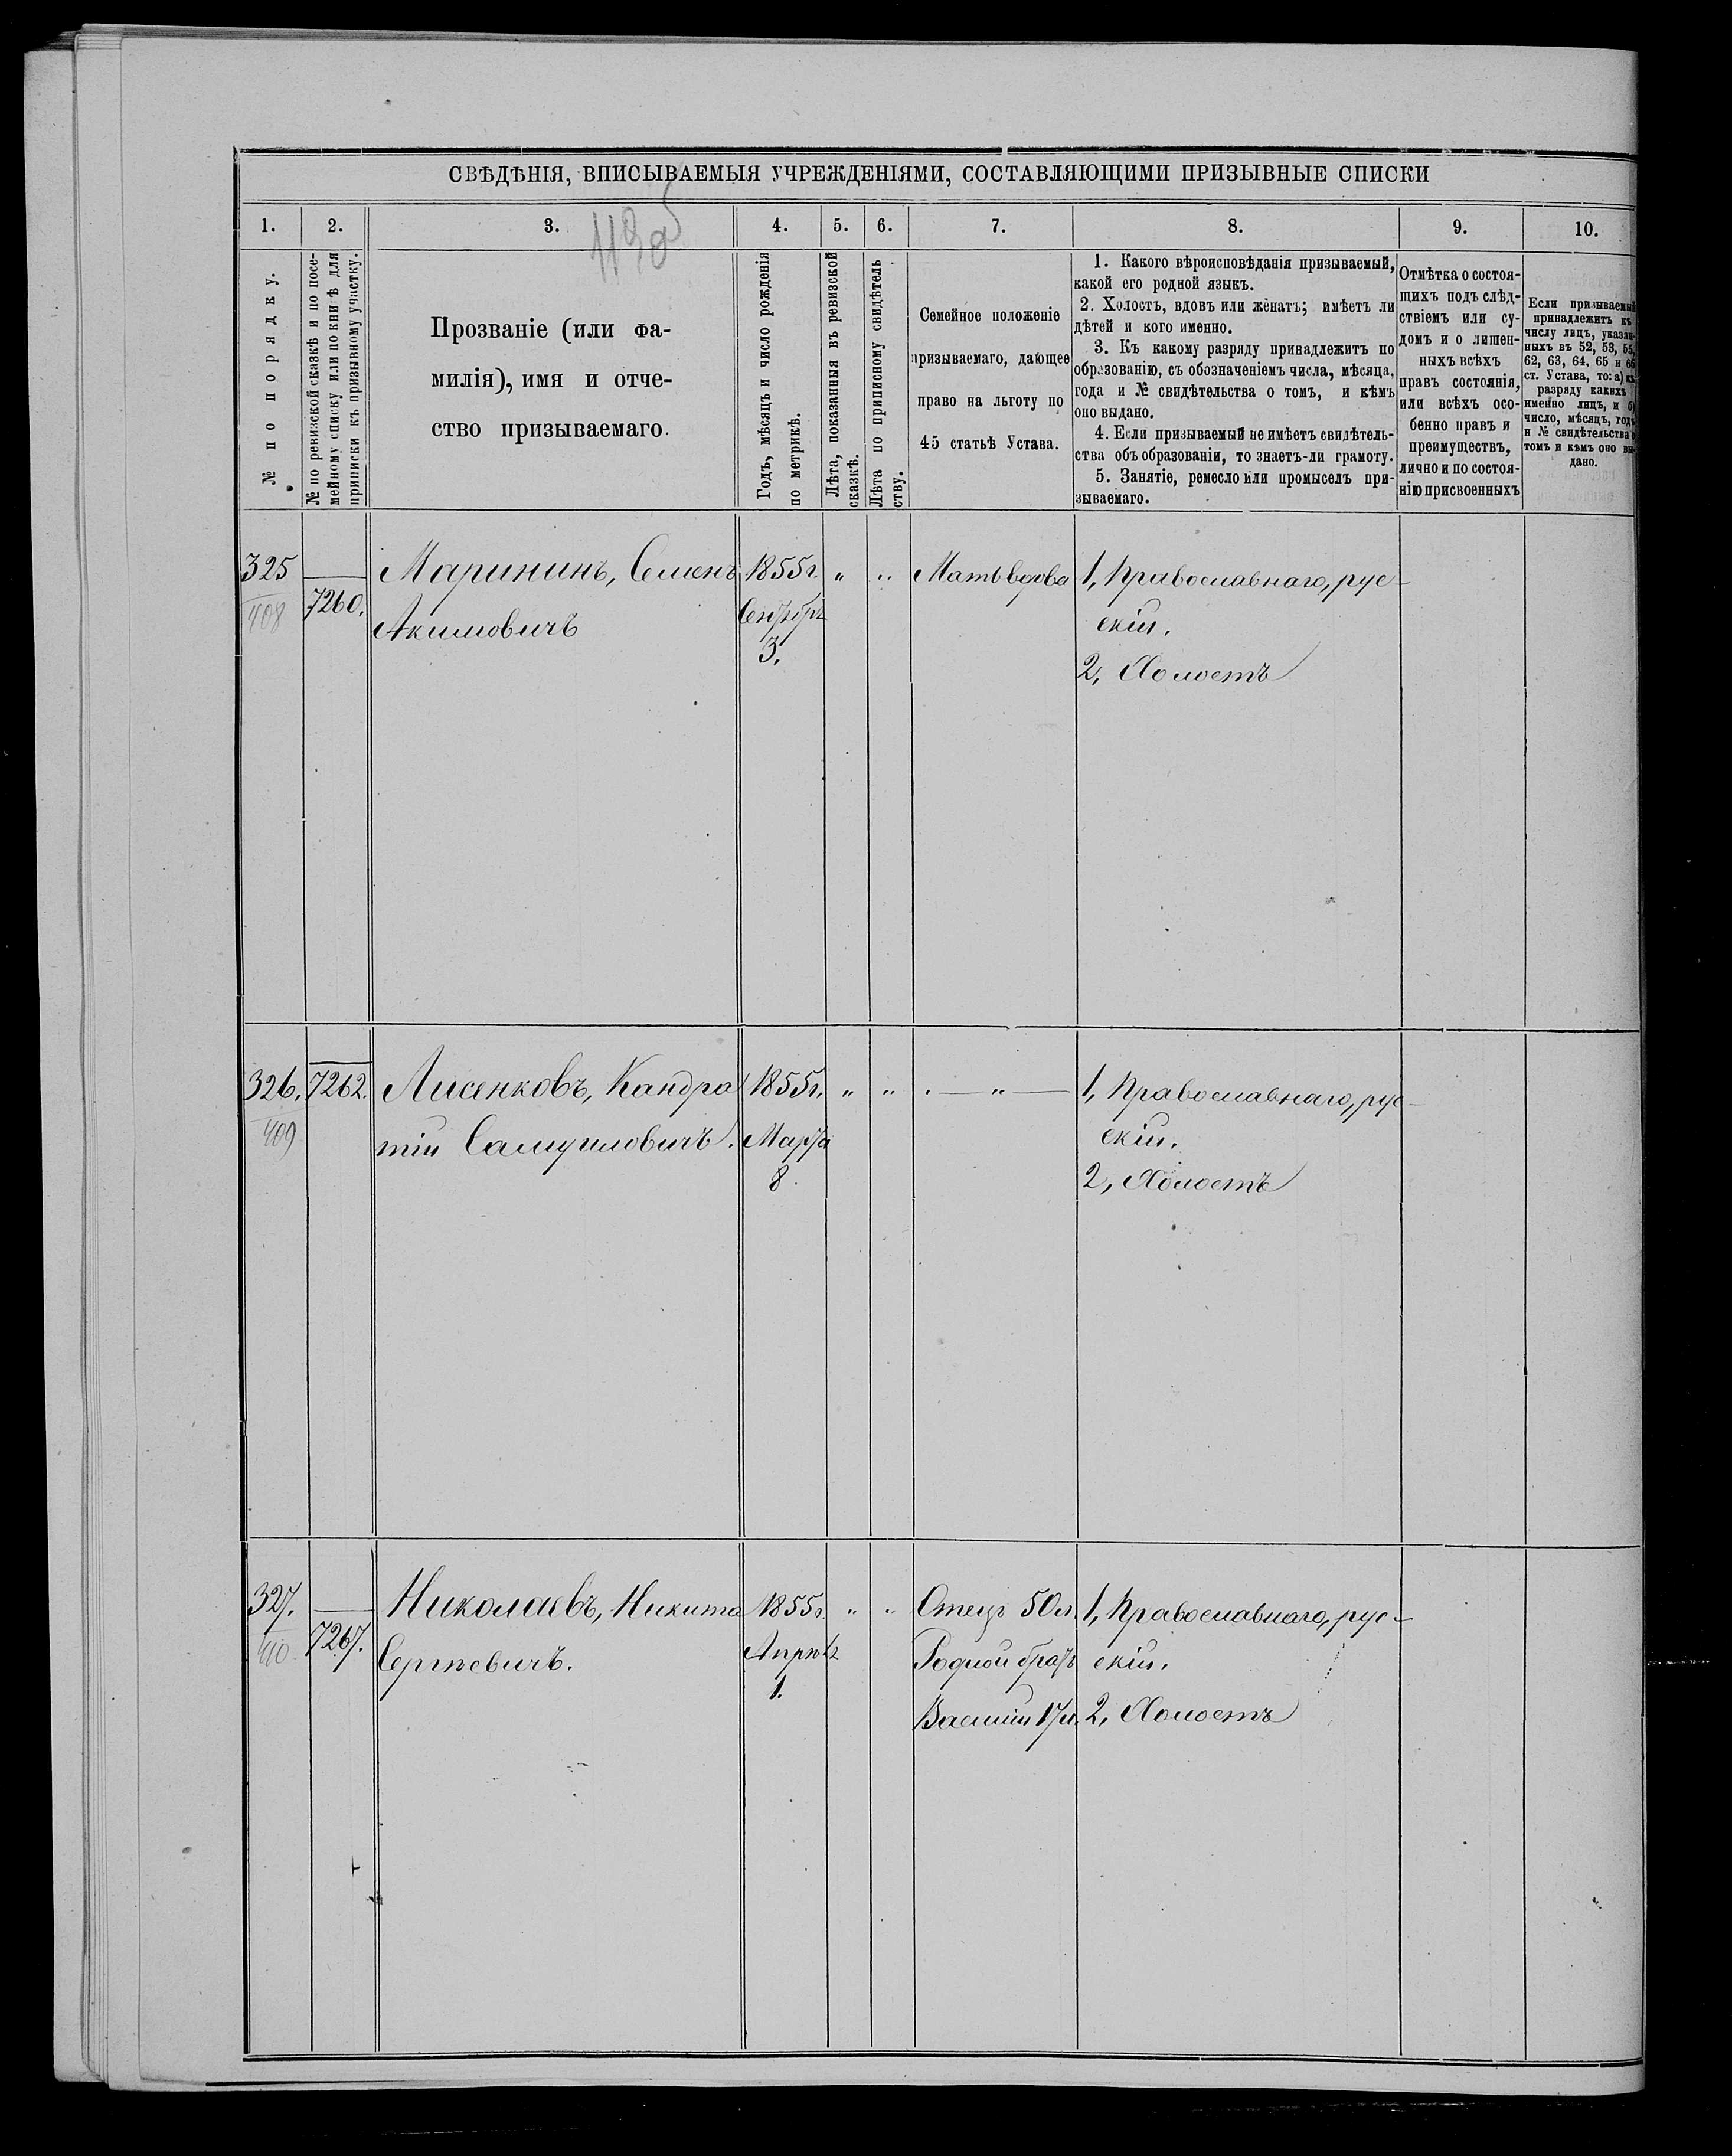 СВѢДѢНІЯ, ВПИСЫВАЕМЫЯ УЧРЕЖДЕНІЯМИ, СОСТАВЛЯЮЩИМИ ПРИЗЫВНЫЕ СПИСКИ
1. 2. 3. 4. 5. 6. 7. 8. 9. 10.
№ по порядку.
№ по ревизской сказкѣ и по посе-
мейному списку или по кни ѣ для
приписки къ призывному участку.
Прозваніе (или фа-
милія), имя и отче-
ство призываемаго.
Годъ, мѣсяцъ и число рожденія
по метрикѣ.
Лѣта, показанныя въ ревизской
сказкѣ.
Лѣта по приписному свидѣтель
ству.
Семейное положеніе
призываемаго, дающее
право на льготу по
45 статьѣ Устава.
1. Какого вѣроисповѣданія призываемый,
какой его родной языкъ.
2. Холостъ, вдовъ или женатъ; имѣетъ ли
дѣтей и кого именно.
3. Къ какому разряду принадлежитъ по
образованію, съ обозначеніемъ числа, мѣсяца,
года и № свидѣтельства о томъ, и кѣмъ
оно выдано.
4. Если призываемый не имѣетъ свидѣтель-
ства объ образованіи, то знаетъ-ли грамоту.
5. Занятіе, ремесло или промыселъ при-
зываемаго.
Отмѣтка о состоя-
щихъ подъ слѣд-
ствіемъ или су-
домъ и о лишен-
ныхъ всѣхъ
правъ состоянія,
или всѣхъ осо-
бенно правъ и
преимуществъ,
лично и по состоя-
нію присвоенныхъ
Если призываемый
принадлежитъ къ
числу лицъ, указан-
ныхъ въ 52, 53, 55,
62, 63, 64, 65 и 66
ст. Устава, то: а) къ
разряду какихъ
именно лицъ, и б)
число, мѣсяцъ, годъ
и № свидѣтельства о
томъ и кѣмъ оно вы-
дано.
325 Маринин, Семенъ 1855г. „ „ Мать вдова 1, Православнаго, рус-
408 7260. Акимовичъ Сентябрь скій.
3.
2, Холостъ
326. 7262. Лисенковъ, Кандра 1855г. „ „ — „ — 1, Православнаго, рус-
409 тій Самуиловичъ. Марта скій.
8. 2, Холостъ
327. Николаевъ, Никита 1855г. „ „ Отецъ 50л. 1, Православнаго, рус-
410 7267. Сергѣевичъ. Апрѣль Родной братъ скій.
1. Василій 17л. 2, Холостъ